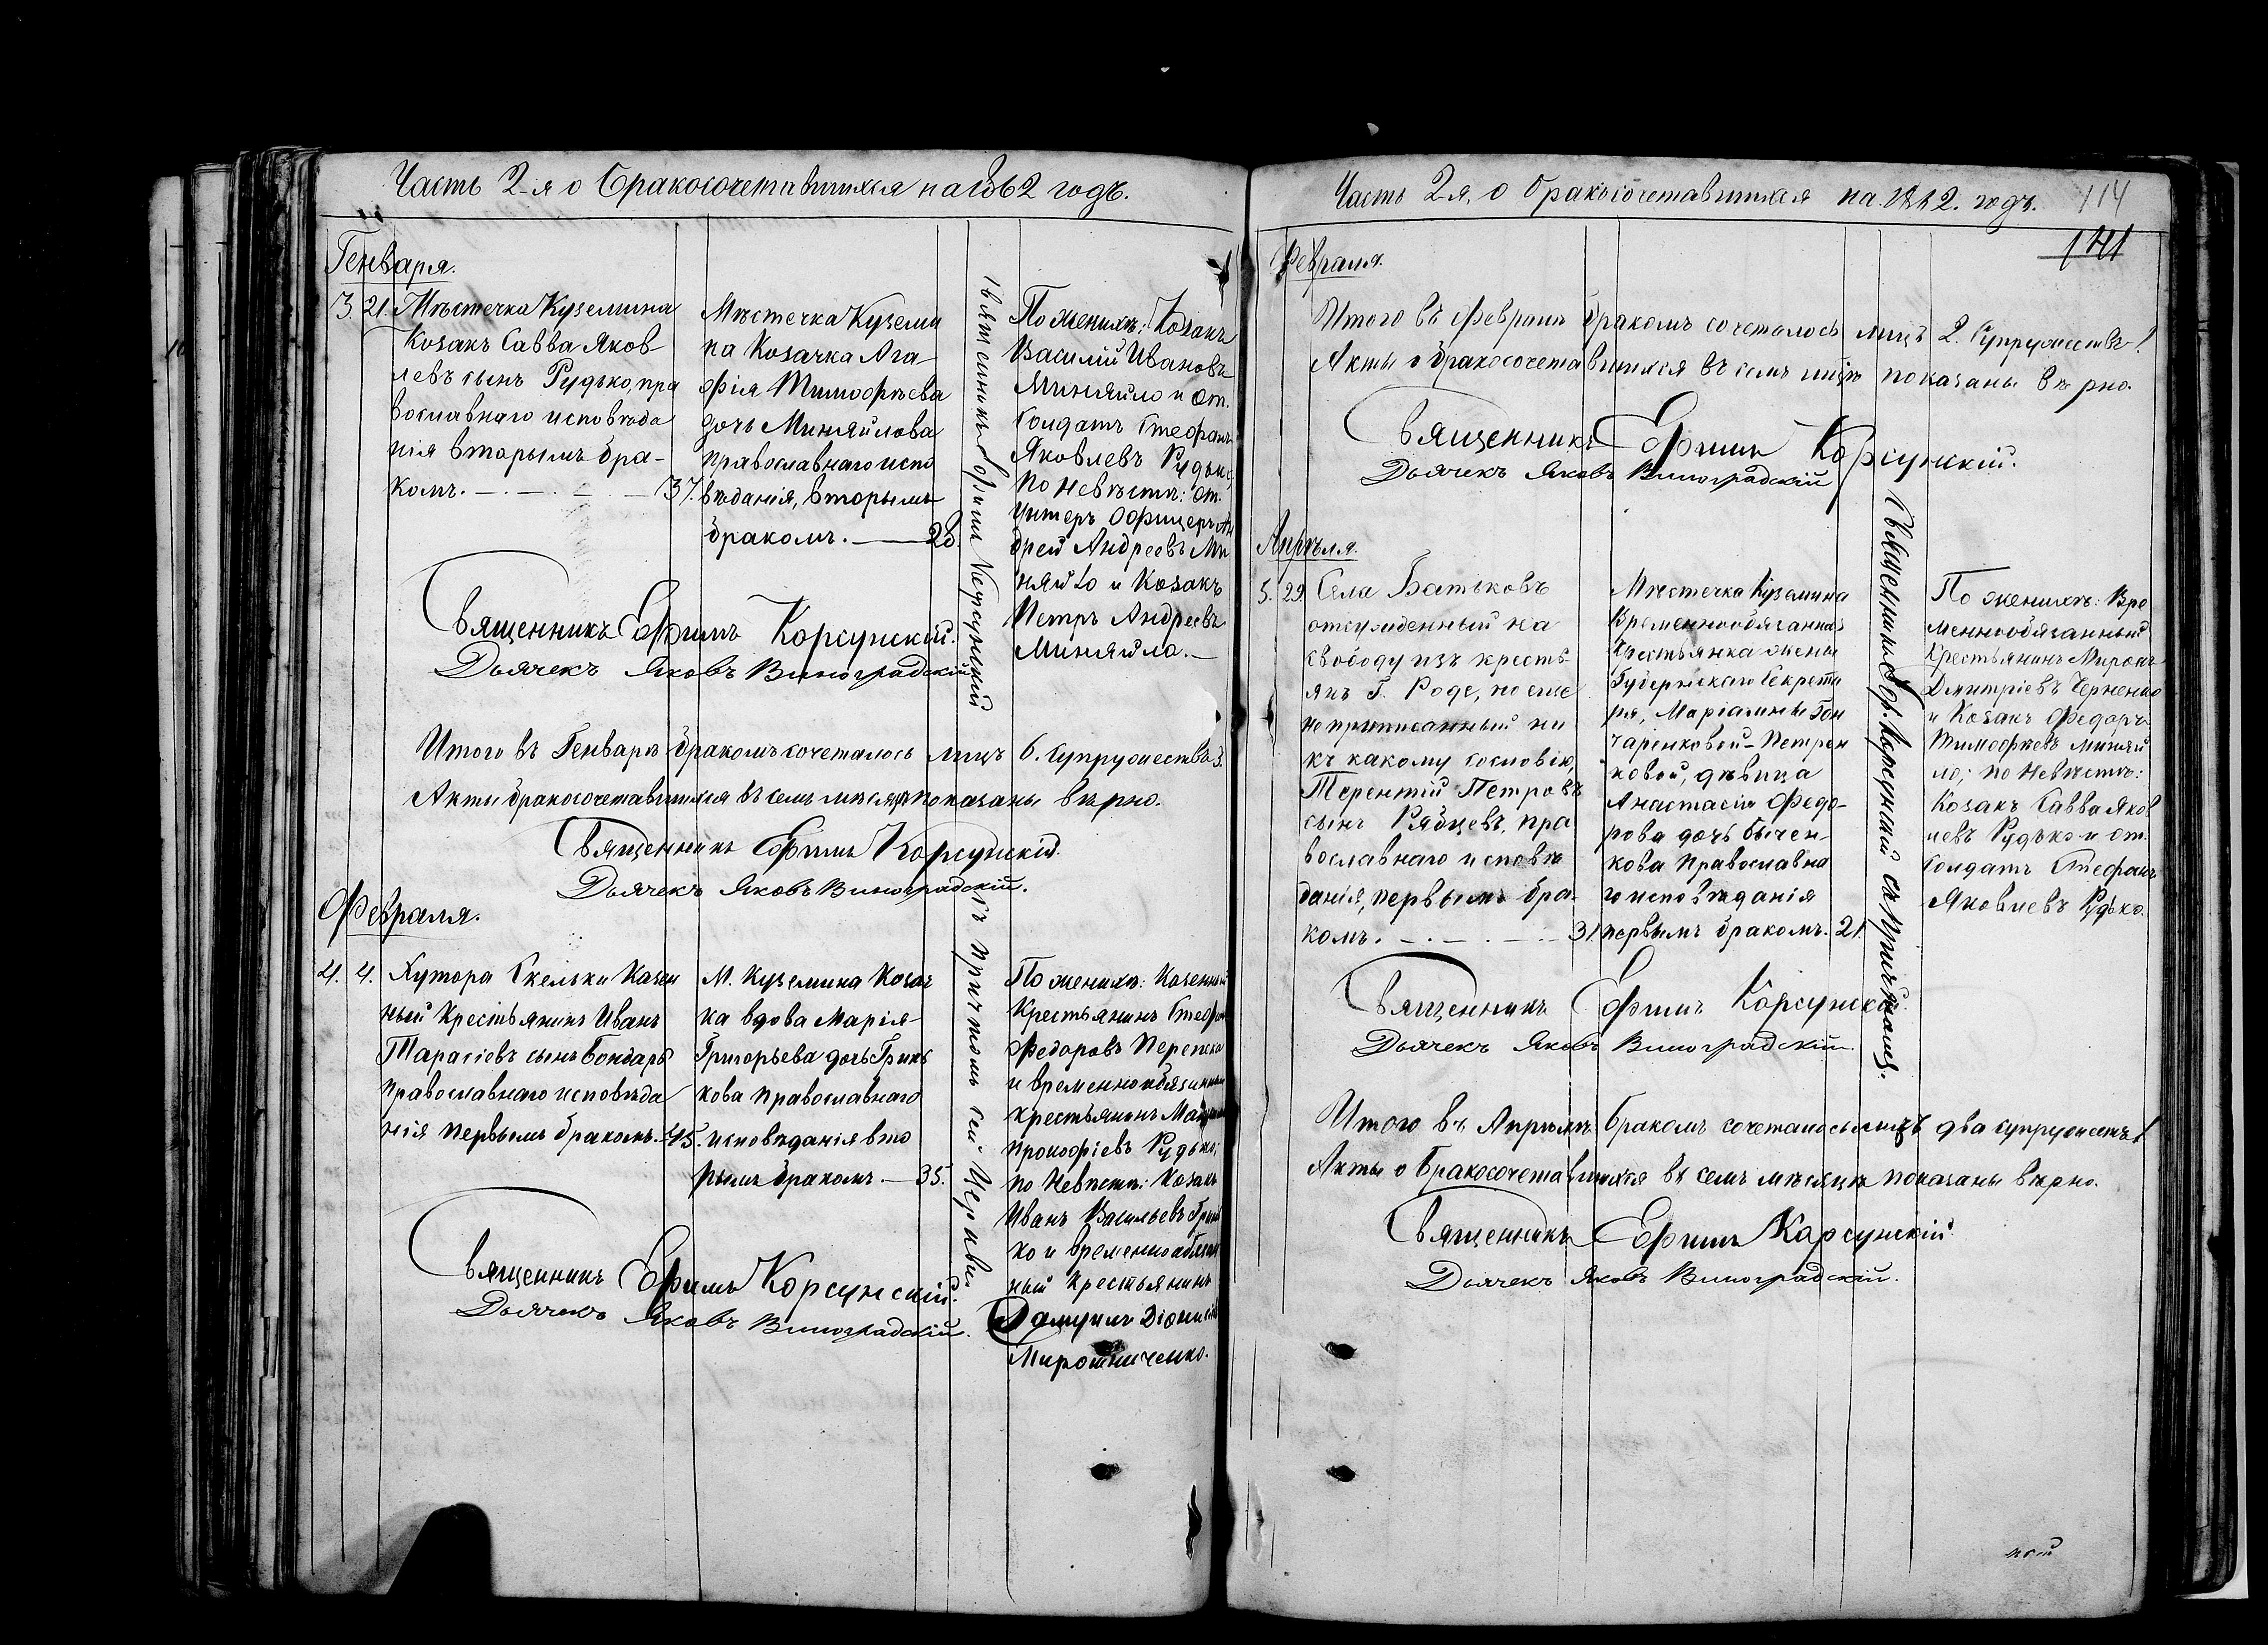 Часть 2-я о бракосочетавшихся на 1862 годъ.
Генваря.
3. 21. Мѣстечка Куземина
Козакъ Савва Яков
левъ сынъ Рудько, пра
вославнаго исповѣда
нія вторымъ бра-
комъ. 37.
Мѣстечка Куземи
на Козачка Ага-
фія Тимофѣева
дочь Миняйлова
православнаго испо
вѣданія, вторымъ
бракомъ. 28.
Священникъ Ефимъ Корсунскій
съ причтомъ сей Церкви
По женихѣ: Козакъ
Василій Ивановъ
Миняйло и от.
Солдатъ Стефанъ
Яковлевъ Рудько,
По невѣстѣ: от.
Унтеръ Офицеръ Ан
дрей Андреевъ Ми
няйло и Козакъ
Петръ Андреевъ
Миняйло.
Священникъ Ефимъ Корсунскій.
Дьячекъ Яковъ Виноградскій
Итого въ Генварѣ бракомъ сочеталось лицъ 6. супружествъ 3.
Акты бракосочетавшихся въ семъ мѣсяцѣ показаны вѣрно.
Священникъ Ефимъ Корсунскій.
Дьячекъ Яковъ Виноградскій.
Февраля.
4. 4. Хутора Скельки Казен
ный Крестьянинъ Иванъ
Тарасіевъ сынъ Бондарь
православнаго исповѣда
нія первымъ бракомъ. 45.
М. Куземина Козач
ка вдова Марія
Григорьева дочь Гринь
кова православнаго
исповѣданія вто
рымъ бракомъ. 35.
По женихѣ: Козенный
Крестьянинъ Стефанъ
Федоровъ
и временнообязанный
крестьянинъ
Прокофіевъ Рудько;
по Невѣстѣ: Козакъ
Иванъ Васильевъ Гринь
ко и временнообязан
ный крестьянинъ
Самуилъ Діонисіевъ
Мирошниченко.
Священникъ Ефимъ Корсунскій.
Дьячекъ Яковъ Виноградскій.
Часть 2-я, о бракосочетавшихся на 1862. годъ. 114
141
Февраля.
Итого въ Февралѣ бракомъ сочеталось лицъ 2. Супружествъ 1.
Акты о бракосочетавшихся въ семъ мѣсяцѣ показаны вѣрно.
Священникъ Ефимъ Корсунскій.
Дьячекъ Яковъ Виноградскій
Апрѣля.
5. 29. Села Батьковъ
отсужденный на
свободу изъ кресть
янъ Г. Роде, но еще
не приписанный ни
къ какому сословію,
Терентій Петровъ
сынъ Рябцевъ, пра
вославнаго исповѣ
данія, первымъ бра-
комъ. 31
Мѣстечка Куземина
Временнообязанная
Крестьянка жены
Губернскаго Секрета
ря, Маріамны Гон
чаренковой-Петрен
ковой, дѣвица
Анастасія Федо-
рова дочь Бычен-
кова Православна
го исповѣданія
первымъ бракомъ. 21.
Священникъ Еф. Корсунскій съ причтомъ.
По женихѣ: Вре
меннообязанный
Крестьянинъ Миронъ
Дмитріевъ Черненко
и Козакъ Федоръ
Тимофѣевъ Миняй
ло; по Невѣстѣ:
Козакъ Савва Яков
левъ Рудько и от.
Солдатъ Стефанъ
Яковлевъ Рудько.
Священникъ Ефимъ Корсунскій.
Дьячекъ Яковъ Виноградскій
Итого въ Апрѣлѣ бракомъ сочеталось лицъ два супружествъ 1
Акты о бракосочетавшихся въ семъ мѣсяцѣ показаны вѣрно.
Священникъ Ефимъ Корсунскій
Дьячекъ Яковъ Виноградскій.